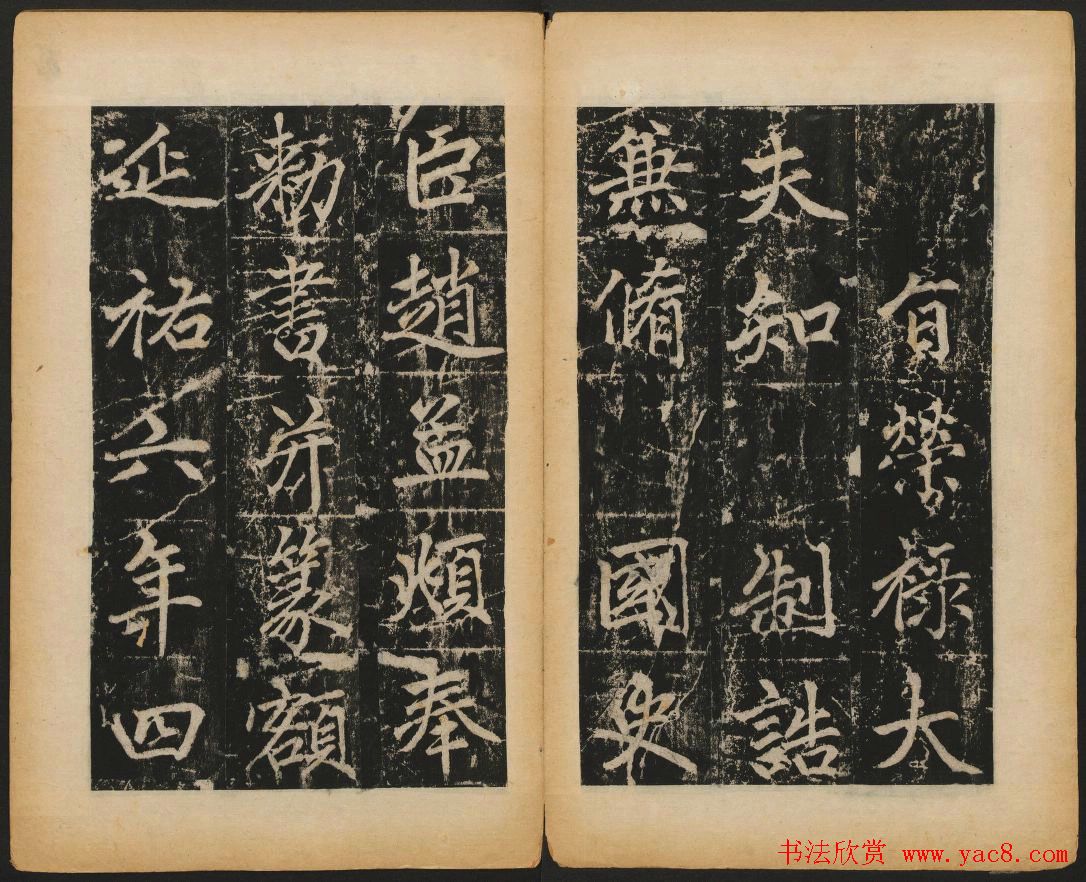 旨榮祿大
夫知制誥
兼脩國史
臣趙孟頫奉
勑書并篆額
延祐六年四
书法欣赏 www.yac8.com